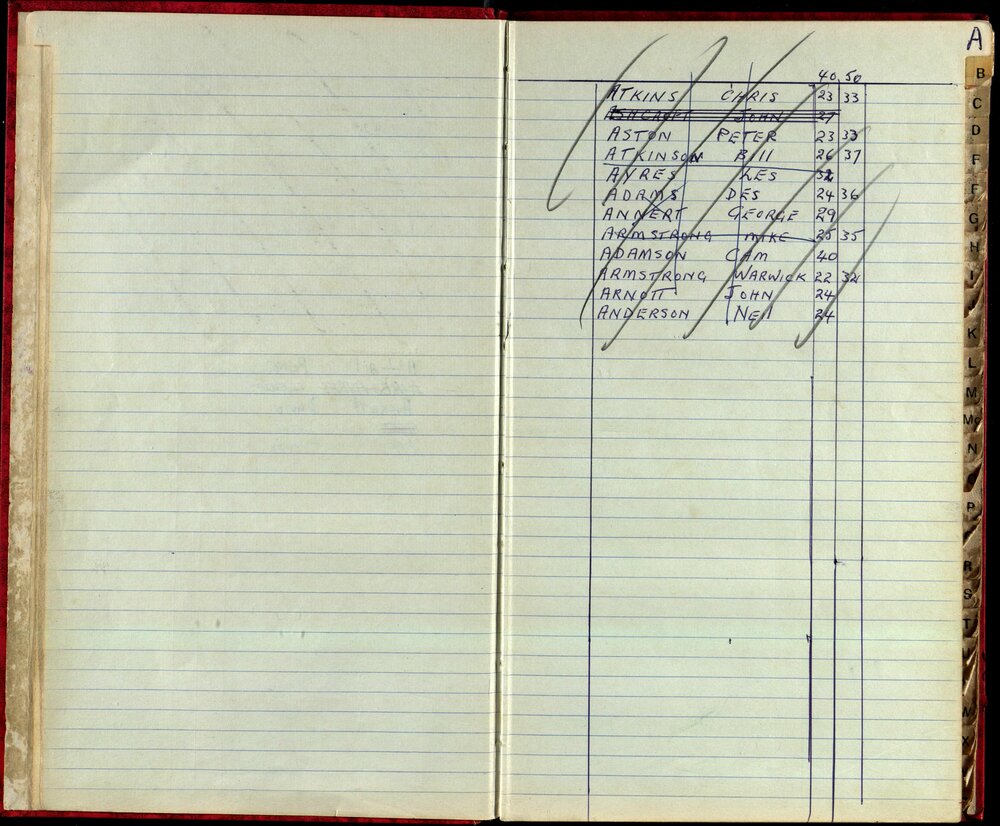 A
40 50
ATKINS CHRIS 23 33
ASHCROFT JOHN 27
ASTON PETER 23 33
ATKINSON Bill 26 37
AYRES LES 32
ADAMS DES 24 36
ANNERT GEORGE 29
ARMSTRONG MIKE 25 35
ADAMSON CAM 40
ARMSTRONG WARWICK 22 32
ARNOTT JOHN 24
ANDERSON Neil 24
B
C
D
E
F
G
H
I
K
L
M
Mc
N
P
R
S
T
W
X